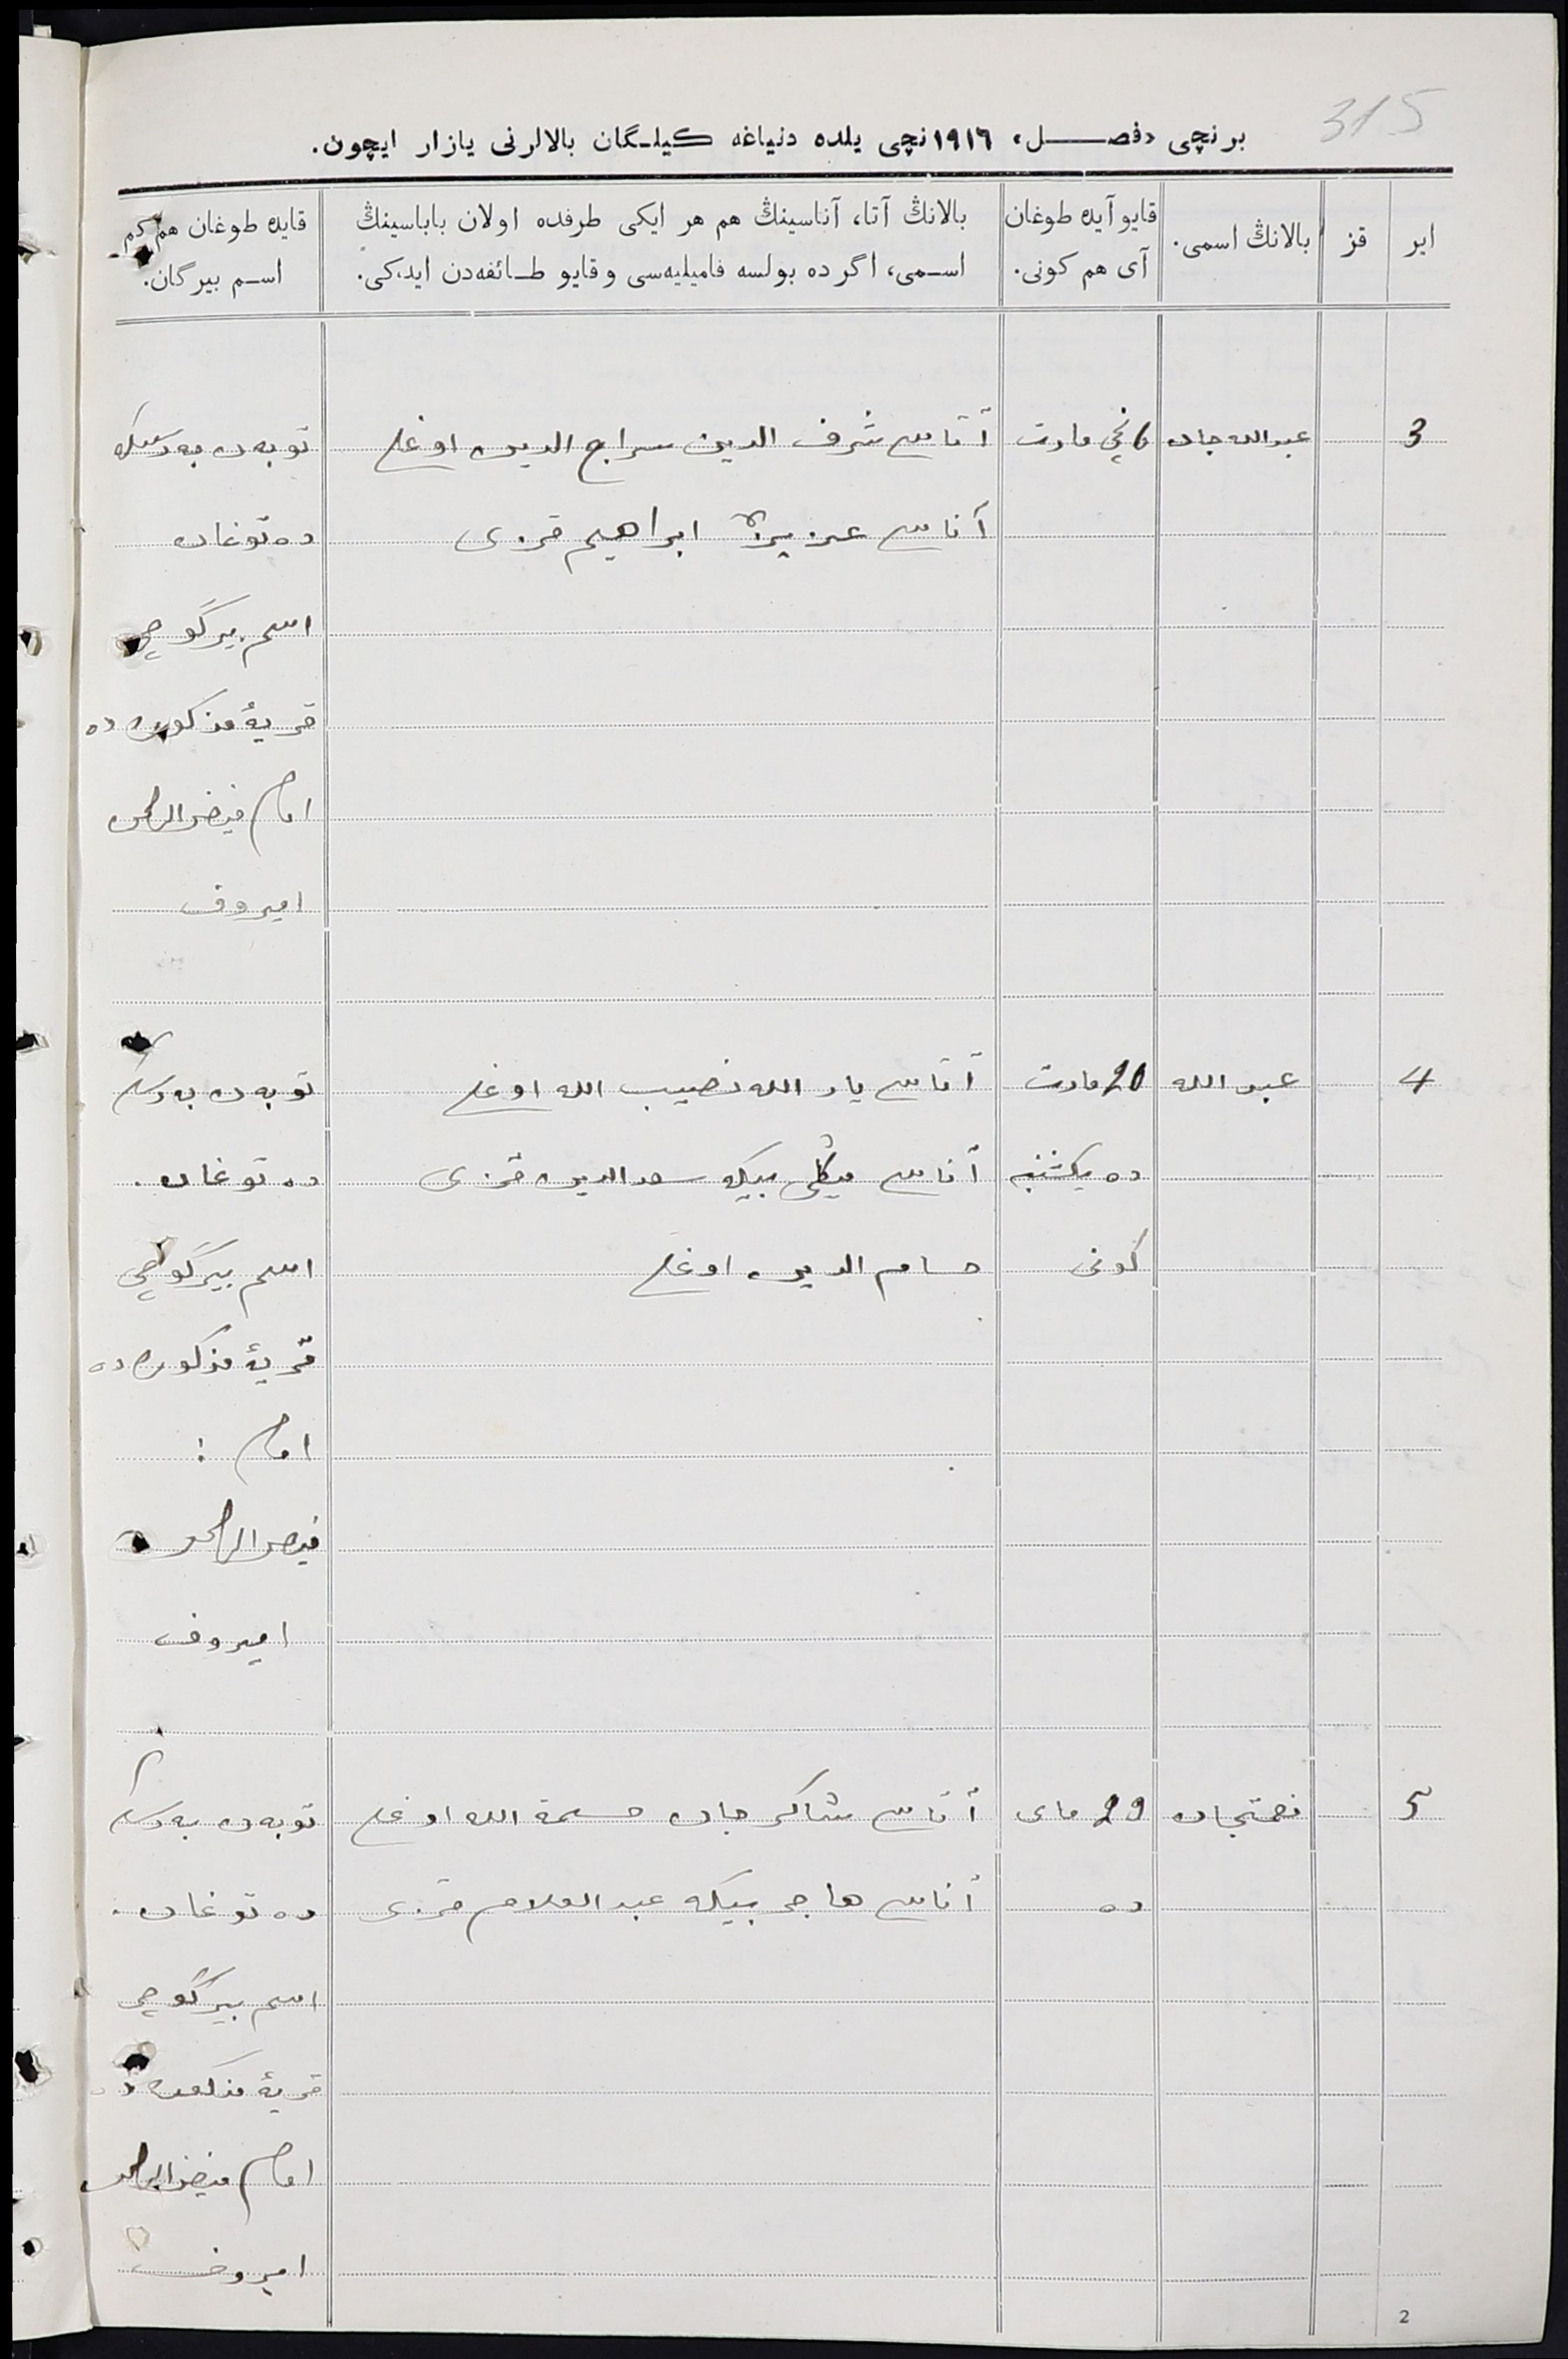 315
برنچی «فصل» ١٩١٦نچی یلده دنیاغه کیلگان بالالرنی یازار ایچون.
ایر
قز
بالانڭ اسمی.
قایو آیده طوغان
آی هم کونی.
بالانڭ آتا، آناسینڭ هم هر ایکی طرفده اولان باباسینڭ
اسمی، اگرده بولسه فامیلیه‌سی و قایو طائفه‌دن ایدکی.
قایده طوغان هم کم
اسم بیرگان.
3
عبدالله جان
6 نچی مارت
آتاسی شرف الدین سراج الدین اوغلی
توبه‌ن به‌رسکه
آناسی عزیزه ابراهیم قزی
ده توغان
اسم بیرگوچی
قریهٔ مذکوره ده
امام فیض الرحمن
امیروف
4
عبد الله
20 مارت
آتاسی یار الله نصیب الله اوغلی
توبه‌ن به‌رسکه
ده یکشنبه
آناسی بیکه سعدالدین قزی
ده توغان.
کونی
حسام الدین اوغلی
اسم بیرگوچی
قریهٔ مذکوره ده
امام :
فیض الرحمن
امیروف
5
نعمتجان
29 مای
آتاسی شاکر جان الله اوغلی
توبه‌ن به‌رسکه
ده
آناسی هاجر بیکه عبد العلام قزی
ده توغان.
اسم بیرگوچی
قریهٔ مذکوره ده
امام فیض الرحمن
امیروف
2